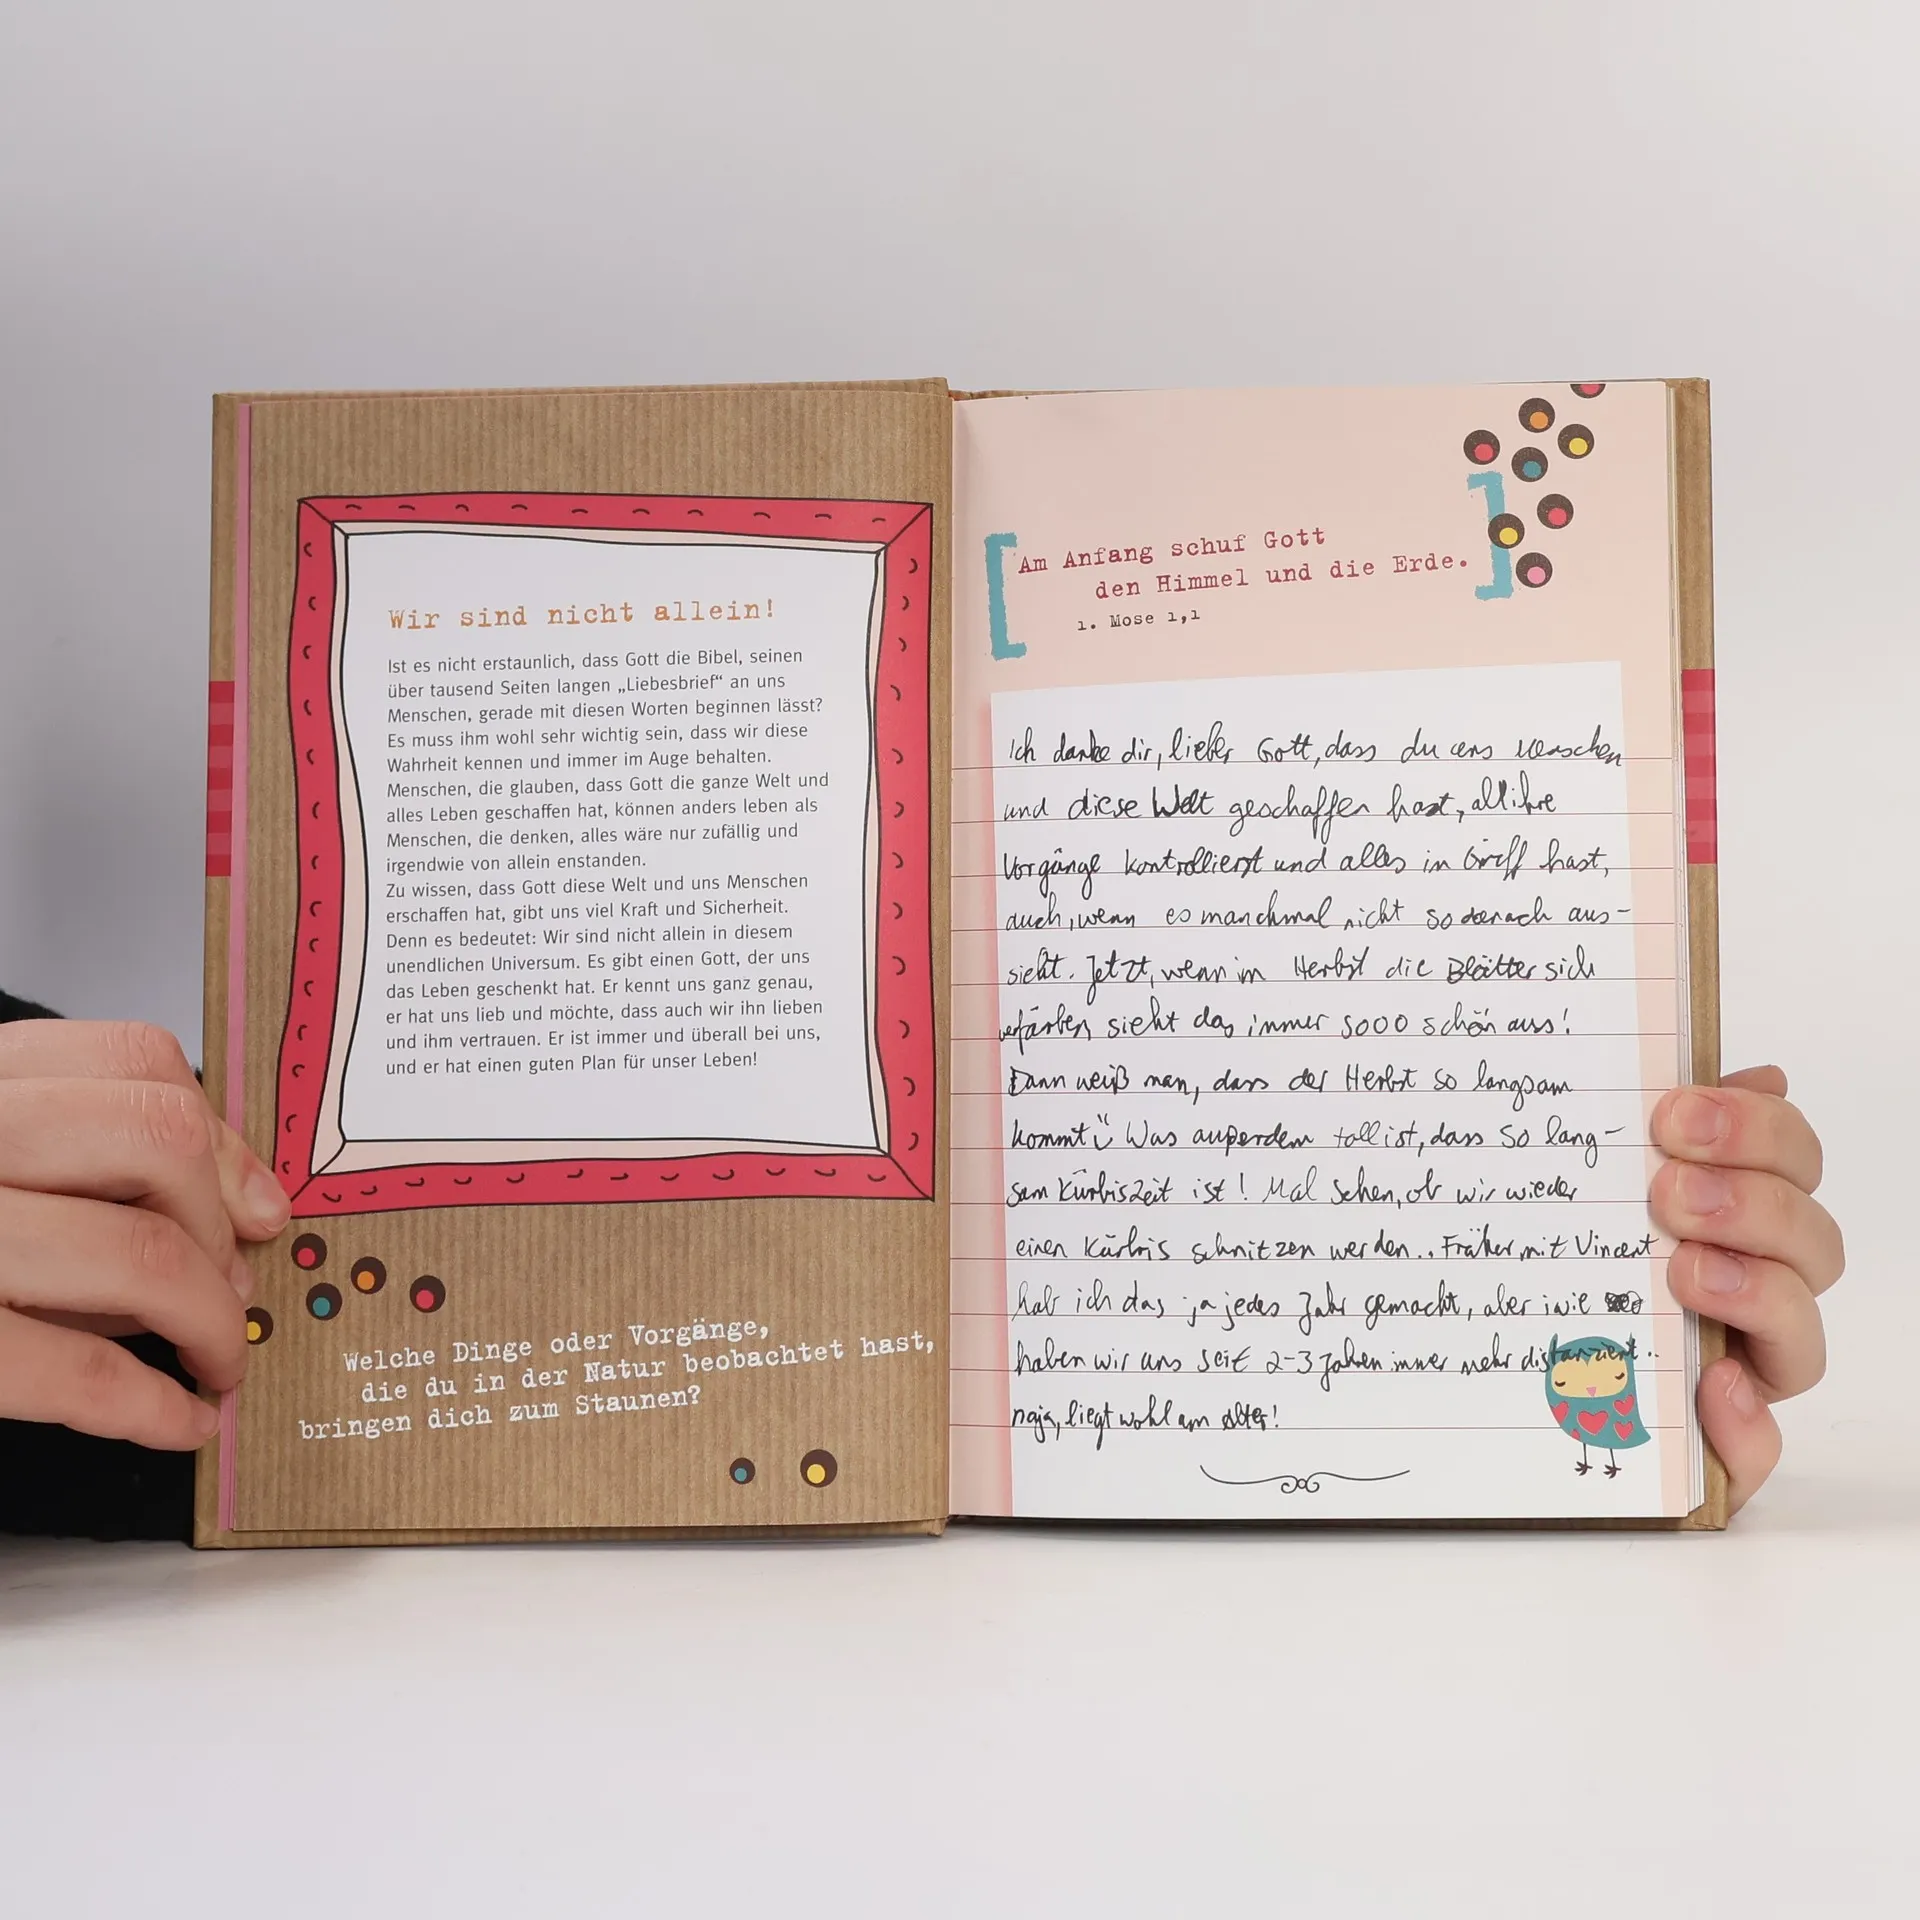 Wir sind nicht allein!
Ist es nicht erstaunlich, dass Gott die Bibel, seinen
über tausend Seiten langen „Liebesbrief“ an uns
Menschen, gerade mit diesen Worten beginnen lässt?
Es muss ihm wohl sehr wichtig sein, dass wir diese
Wahrheit kennen und immer im Auge behalten.
Menschen, die glauben, dass Gott die ganze Welt und
alles Leben geschaffen hat, können anders leben als
Menschen, die denken, alles wäre nur zufällig und
irgendwie von allein enstanden.
Zu wissen, dass Gott diese Welt und uns Menschen
erschaffen hat, gibt uns viel Kraft und Sicherheit.
Denn es bedeutet: Wir sind nicht allein in diesem
unendlichen Universum. Es gibt einen Gott, der uns
das Leben geschenkt hat. Er kennt uns ganz genau,
er hat uns lieb und möchte, dass auch wir ihn lieben
und ihm vertrauen. Er ist immer und überall bei uns,
und er hat einen guten Plan für unser Leben!
Welche Dinge oder Vorgänge,
die du in der Natur beobachtet hast,
bringen dich zum Staunen?
Am Anfang schuf Gott
den Himmel und die Erde.
1. Mose 1,1
Ich danke dir, lieber Gott, dass du uns Menschen
und diese Welt geschaffen hast, all ihre
Vorgänge kontrollierst und alles in Griff hast,
auch, wenn es manchmal nicht so danach aus-
sieht. Jetzt, wenn im Herbst die Blätter sich
verfärben, sieht das immer sooo schön aus!
Dann weiß man, dass der Herbst so langsam
kommt Was außerdem toll ist, dass so lang-
sam Kürbiszeit ist! Mal sehen, ob wir wieder
einen Kürbis schnitzen werden.. Früher mit Vincent
hab ich das ja jedes Jahr gemacht, aber iwie
haben wir uns seit 2-3 Jahren immer mehr distanziert..
naja, liegt wohl am Alter!